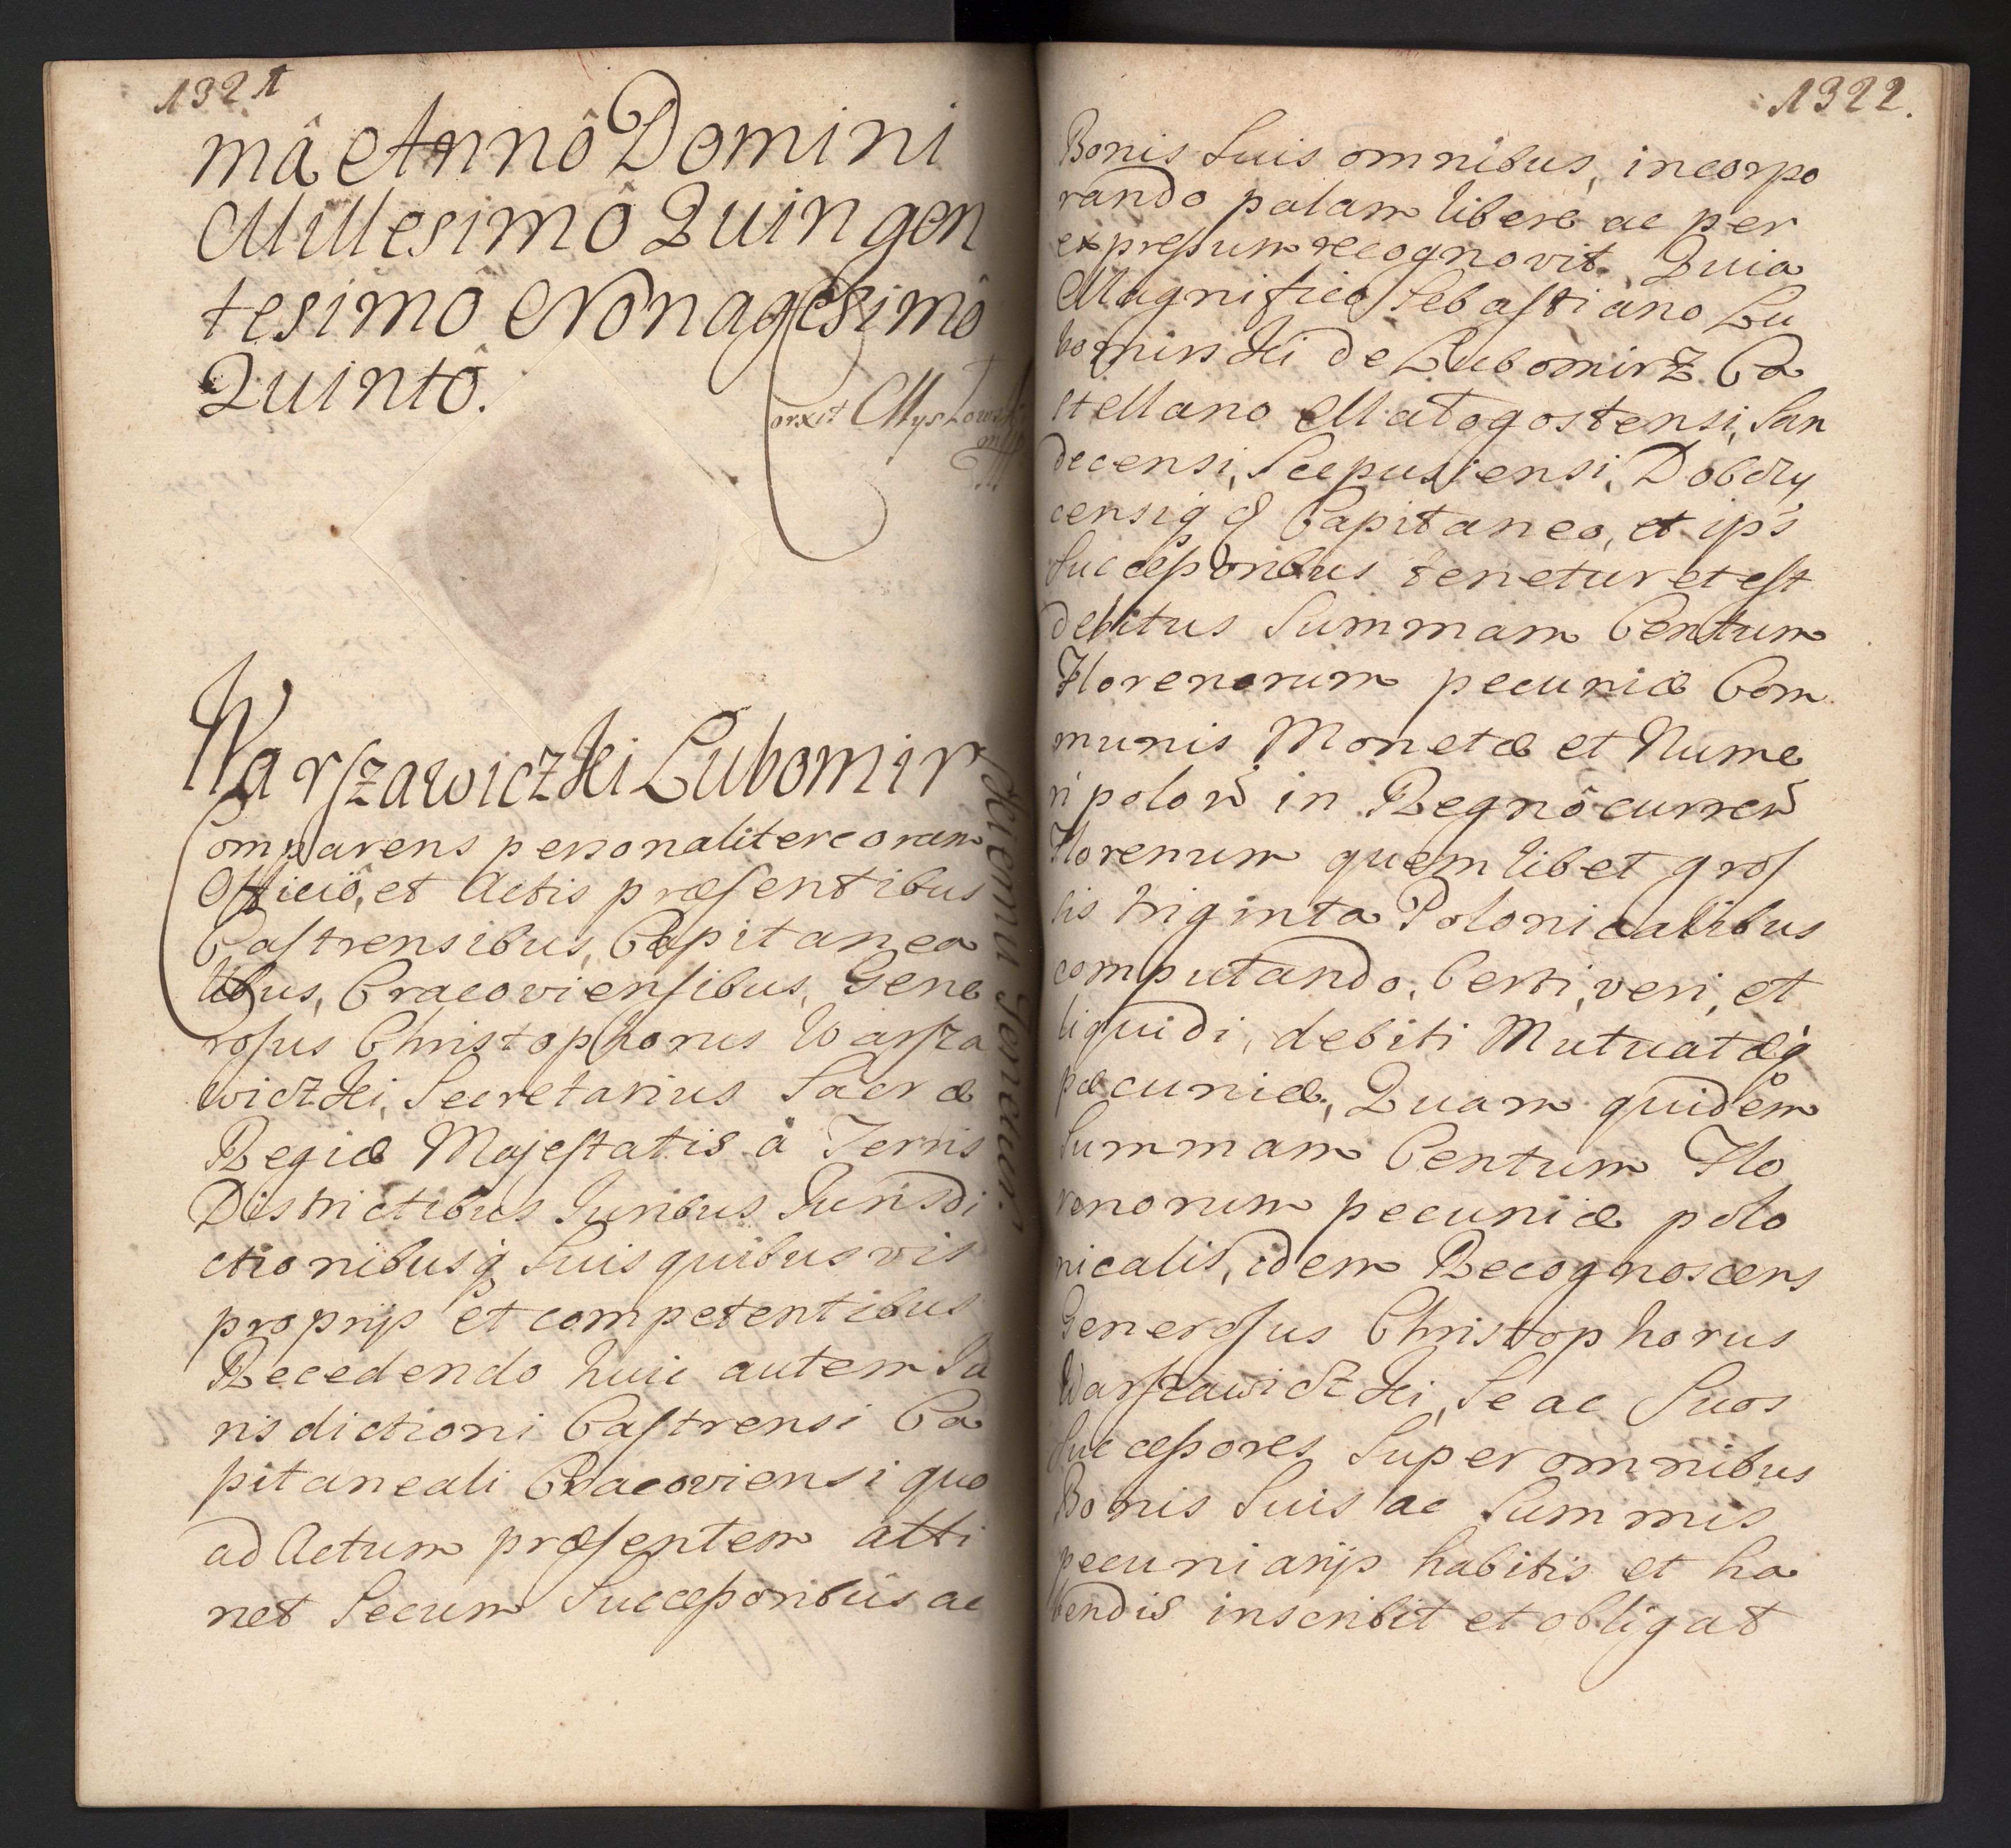 1321
mâ Annô Domini
Millesimô Quingen
tesimô Nonagesimô
Quintô.
Warszawiczki Lubomir
Comparens personaliter coram
Officiô, et Actis præsentibus
Castrensibus, Capitanea
libus, Cracoviensibus, Gene
rosus Christophorus Warsza
wiczki, Secretarius Sacræ
Regiæ Majestatis à Terris
Districtibus Juribus Jurisdi
ctionibusq suis quibusvis
proprijs et competentibus
Recedendo huic autem Ju
risdictioni Castrensi Ca
pitaneali Cracoviensi quo
ad Actum præsentem atti
net Secum Successoribus ac
1322.
Bonis Suis omnibus, incorpo
rando palam libere ac per
expressum recognovit. Quia
Magnifico Sebastiano Lu
bomirski de Lubomirz Ca
stellano Małogostensi, San
decensi, Scepusiensi, Dobczy
censiq q Capitaneo, et ips
Successoribus tenetur et est
debitus Summam Centum
Florenorum pecuniæ Com
munis Monetæ et Nume
ri polon in Regnô curren
Florenum quemlibet gros
sis triginta Polonicalibus
computando, Certi, veri, et
liquidi, debiti Mutuatæq
pæcuniæ, Quam quidem
Summam Centum Flo
renorum pecuniæ polo
nicalis, idem Recognoscens
Generosus Christophorus
Warszawiczki, Se ac Suos
Successores Super omnibus
Bonis Suis ac Summis
pecuniarijs habitis et ha
bendis inscribit et obligat